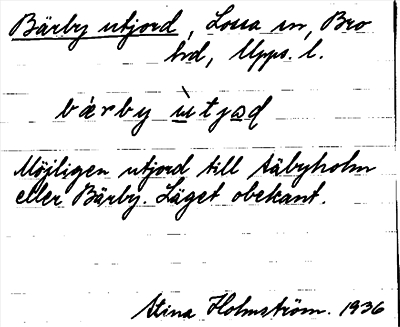 Bärby utjord, Lossa sn, Bro
hd, Upps. l.
bárby ùtjoḍ
Möjligen utjord till Säbyholm
eller Bärby. Läget obekant.
Stina Holmström. 1936